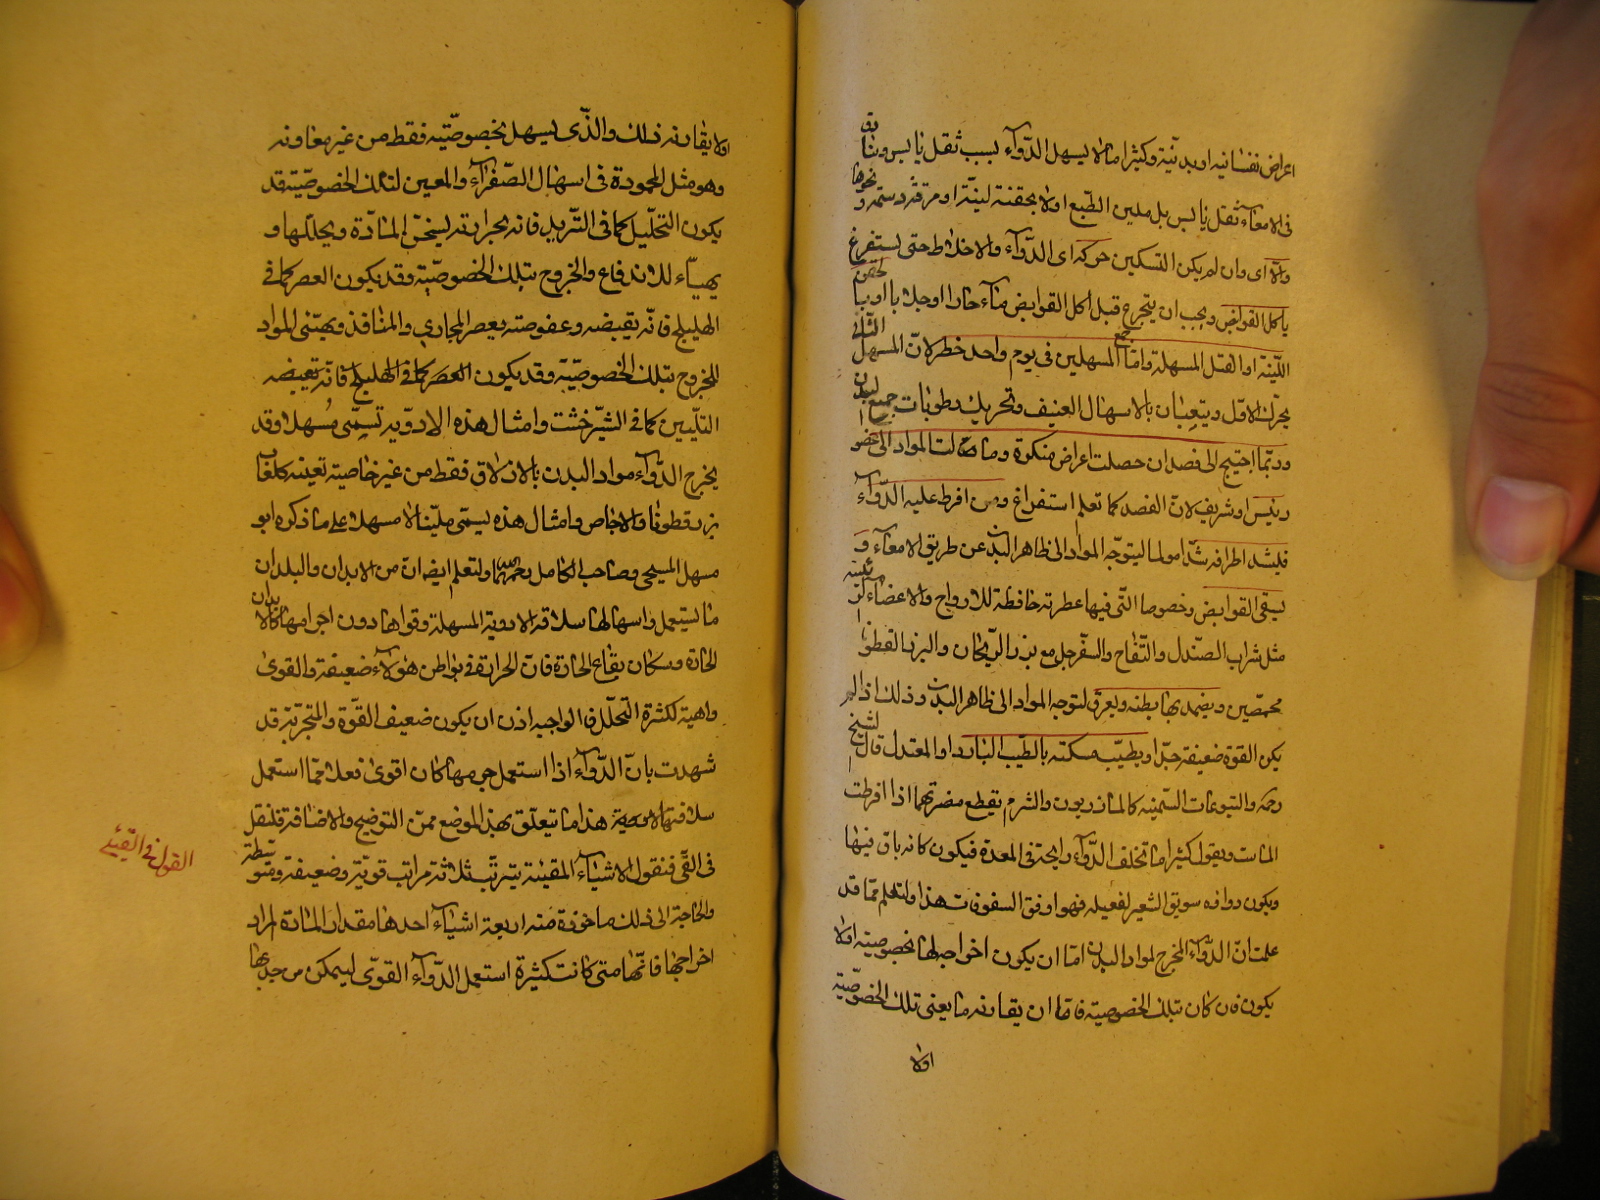 اعراض نفسانیه او بدنیّة وکثیرا ما لا یسهل الدّوآء بسبب ثقل یابس وثاق
فی الامعآء ثقل یابس بل ملین الطّبع اولا بحقنة لینّة او مرقة دسمه ونحوها
والا ای وان لم یکن التسکین حرکه ای الدّوآء والاخلاط حتی یستفرغ
باکل القوابض ویجب ان یتجرع قبل اکل القوابض مآء حارا او جلابا او
اللّینة او الفتل المسهلة وامّا جمع المسهلین فی یوم واحد خطر لانّ المسهل الثانی
یحرّک الاوّل ویتعبان بالاسهال العنیف وتحریک رطوبات جمیع البدن
وربّما احتیج الی فصد ان حصلت اعراض منکرة وما مالت المواد الی عضو
رئیس او شریف لانّ الفصد کما تعلم استفراغ ومن افرط علیه الدّوآء
فلیشد اطرافه شدّا مولما لیتوجّه المواد الی ظاهر البدن عن طریق الامعآء و
یسقی القوابض وخصوصا الّتی فیها عطریة حافظة للارواح والاعضآء الرئیسة
مثل شراب الصّندل والتّفاح والسّفرجل مع بزر الرّیحان والبزر القطونا
محمّصین ویضمد بها بطنه ویعرق لتوجه المواد الی ظاهر البدن وذلک اذا لم
یکن القوة ضعیفة جدّا ویطیّب مسکنه بالطّیب البارد او المعتدل قال الشیخ
رحمه والتیوعات السّمیّه کالمازریون والشبرم یقطع مضرتهما اذا افرطت
الماست ویقول کثیرا ما تخلف الدّوآء رایحة فی المعدة فیکون کانه باق فیها
ویکون دوآه سویق الشعیر لغسله فهو اوفق السفوفات هذا ولتعلم ممّا قد
علمت انّ الدّوآء المخرج لمواد البدن امّا ان یکون اخراجه لها بخصوصیته اولا
یکون فان کان بتلک الخصوصیّة فامّا ان یقارنه ما یعین تلک الخصوصّیّة
اولا
اولا یقارنه ذلک والّذی یسهل بخصوصّیّته فقط من غیر معاونه
وهو مثل المحمودة فی اسهال الصّفرآء والمعین لتلک الخصوصّیّة قد
یکون التحلیل کما فی التّربد فانه بحرارته یسخّن المادّة ویحللها و
یهیّئء للاندفاع والخروج بتلک الخصوصّیّة وقد یکون العصر کما فی
الهلیلج فانّه بقبضه وعفوصته یعصر المجاری والمنافذ ویهیّئ المواد
للخروج بتلک الخصوصیّة وقد یکون العصر کما فی الهلیلج فانّه بقبضه
التلیّین کما فی الشیّرخشت وامثال هذه الادویة تسمّی مُسهلا وقد
یخرج الدّوآء مواد البدن بالازلاق فقط من غیر خاصیة تعینه کلعاب
بزرقطونا والاجاص وامثال هذه یسمّی ملیّنا لا مسهلا علی ما ذکره ابو
سهل المسیحی وصاحب الکامل رحمهما الله ولتعلم ایضا انّ من الابدان والبلدان
ما یستعمل واسهالها سلاقة الادویة المسهلة وقواها دون اجرامها کالابدان
الحارّة وسکان بقاع الحارّة فانّ الحرارة فی بواطن هولآء ضعیفة والقوی
واهیة لکثرة التحلّل فالواجب اذن ان یکون ضعیف القوّة والتجربة قد
شهدت بانّ الدّوآء اذا استعمل جرمها کان اقوی فعلا ممّا استعمل
سلاقتها هذا ما یتعلّق بهذا الموضع من التوضیح والاضافة فلنقل
فی القی فنقول الاشیآء المقیئة یترتّب ثلاثة مراتب قویّة وضعیفة ومتوسّطة
والحاجة الی ذلک ماخوذة منه اربعة اشیآء احدها مقدار المادّة المراد
اخراجها فانّها متی کانت کثیرة استعمل الدّوآء القوّی لیتمکن من جذبها
القول فی القیئ